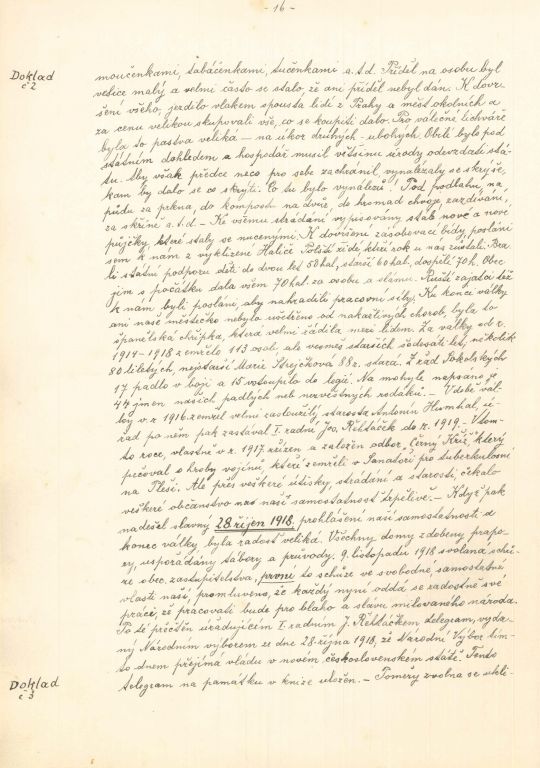 - 16 -
Doklad
č 2
moučenkami, tabáčenkami, tučenkami a.t.d. Příděl na osobu byl
velice malý a velmi často se stalo, že ani příděl nebyl dán. K dovr-
šení všeho, jezdilo vlakem spousta lidí z Prahy a měst okolních a
za cenu velikou skupovali vše, co se koupiti dalo. Pro válečné lichváře
byla to pastva veliká – na úkor druhých - ubohých. Obilí bylo pod
státním dohledem a hospodář musil většinu úrody odevzdati stá-
tu. Aby však předce něco pro sebe zachránil, vynalézaly se skrýše,
kam by dalo se co skrýti. Co tu bylo vynálezů! Pod podlahu, na
půdu za prkna, do kompostu na dvůr, do hromad chvoje, zazdívání,
za skříně a.t.d. – Ke všemu strádání vypisovány stále nové a nové
půjčky, které staly se nucenými. K dovršení zásobovací bídy, posláni
sem k nám z vyklizené Haliče Polští židé, kteří rok u nás zůstali. Bra-
li státní podporu děti do dvou let 50 hal., starší 60 hal., dospělí 70 h. Obec
jim s počátku dala všem 70 hal. za osobu a slámu. Ruští zajatci též
k nám byli posláni, aby nahradili pracovní síly. Ke konci války
ani naše městečko nebylo ušetřeno od nakažlivých chorob, byla to
španělská chřipka, která velmi řádila mezi lidem. Za války od r.
1914-1918 zemřelo 113 osob, ale vesměs starších šedesáti let, několik
80 litetých, nejstarší Marie Strejčková 88 r. stará. Z řad Sokolských
17 padlo v boji a 15 vstoupilo do legií. Na mohyle napsáno je
44 jmen našich padlých neb nezvěstných rodáků. – V době vál-
ky v r. 1916 zemřel velmi zasloužilý starosta Antonín Humhal, ú-
řad po něm pak zastával I. radní Jos. Řehtáček do r. 1919. – V tom-
to roce, vlastně v r. 1917 zřízen a založen odbor „Černý Kříž", který
pečoval o hroby vojínů, kteří zemřeli v Sanatoři pro tuberkulosní
na Pleši. Ale přes veškeré útisky, strádání a starosti, čekalo
veškeré občanstvo na naši samostatnost trpělivě. – Když pak
nadešel slavný 28. říjen 1918, prohlášení naší samostatnosti a
konec války, byla radost veliká. Všechny domy zdobeny prapo-
ry, uspořádány tábory a průvody. 9. listopadu 1918 svolaná schů-
ze obec. zastupitelstva, první to schůze ve svobodné, samostatné
vlasti naší, promluveno, že každý nyní oddá se radostně své
práci, že pracovati bude pro blaho a slávu milovaného národa.
Po té přečten úřadujícím I. radním J. Řehtáčkem telegram, vyda-
ný Národním výborem ze dne 28. října 1918, že Národní Výbor tím-
to dnem přejímá vládu v novém československém státě. Tento
telegram na památku v knize uložen. – Poměry zvolna se uhli-
Doklad
č 3